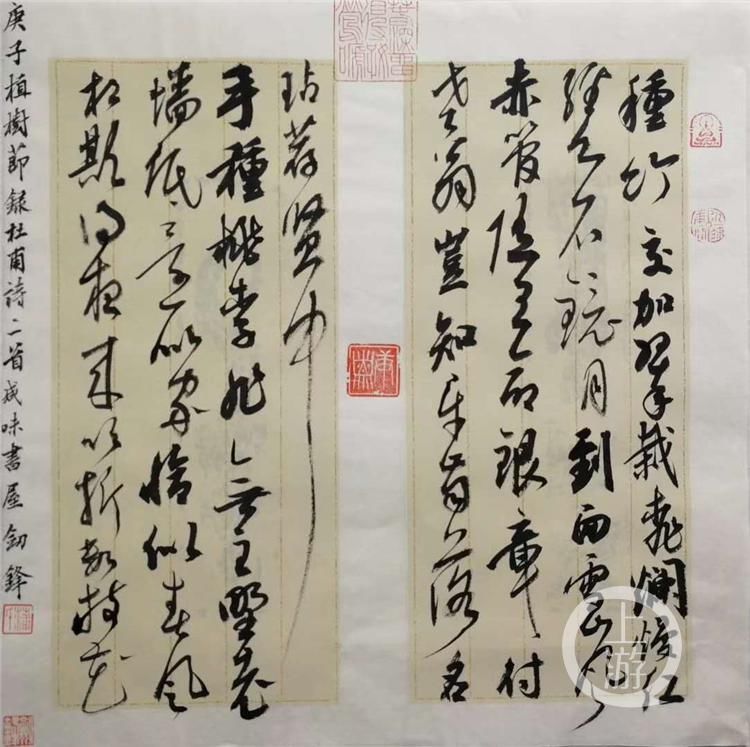 種竹交加翠栽桃爛熳紅
經心石鏡月到面雪山風
赤管隨王命銀章付
老翁豈知牙齒落名
玷荐賢中
手種桃李非無主野老
墻低還似家恰似春風
相欺得夜來吹折數枝花
庚子植樹節録杜甫詩二首咸味書屋釼鋒
上游